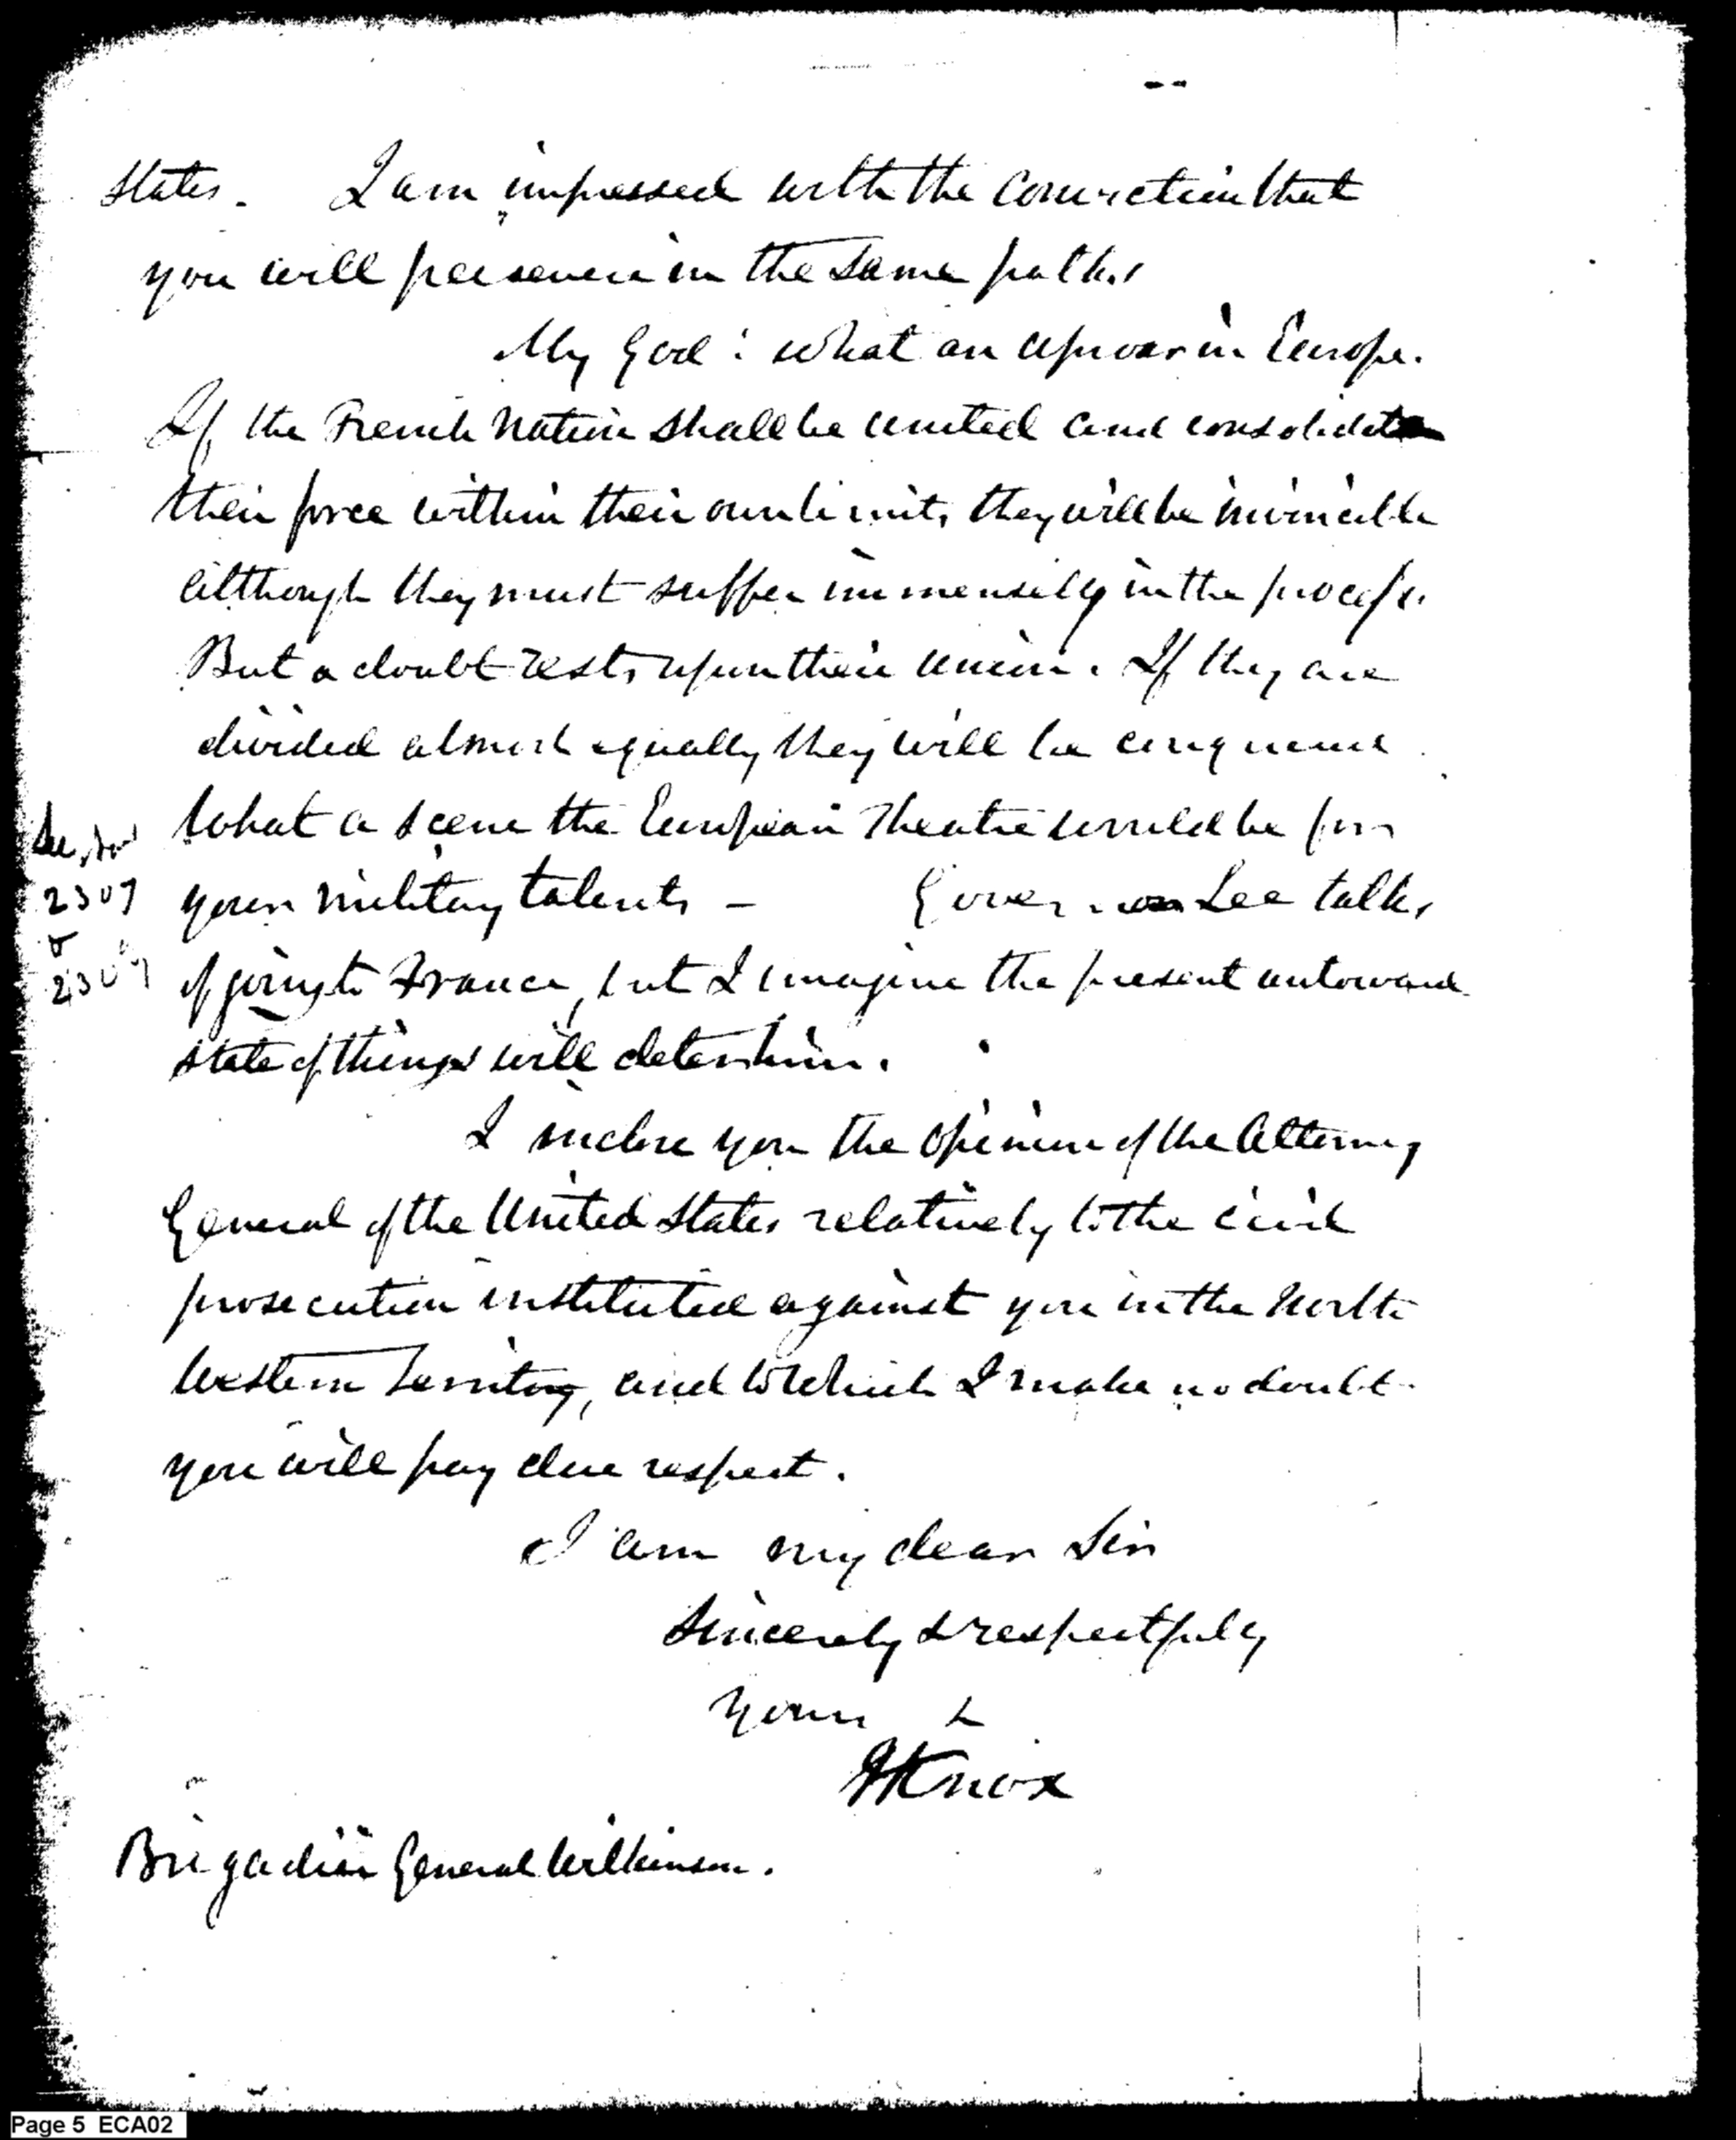 States. I am impressed with the conviction that
you will persevere in the same paths
My God! what an uproar in Europe.
If the French Nation shall be united and consolidate
their force within their own limits they will be invincible
although they must suffer immensely in the process.
But a doubt rests upon their union. If they are
divided almost equally they will be conquered.
What a scene the European Theatre would be for
your military talents - Governor Lee talks
of going to France, but I imagine the present untoward
state of things will deter him.
I inclose you the opinion of the Attorney
General of the United States relatively to the civil
prosecution instituted against you in the North
Western Territory, and to which I make no doubt
you will pay due respect.
I am my dear Sir
Sincerely & respectfully
Yours &
HKnox
Brigadier General Wilkinson.
2307
2309
Page 5 ECA02